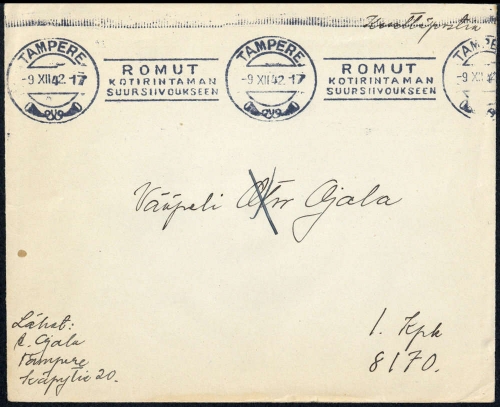 Kenttäpostia
TAMPERE
-9 XII 42 -17
ROMUT
KOTIRINTAMAN
SUURSIIVOUKSEEN
TAMPERE
-9 XII 42 -17
ROMUT
KOTIRINTAMAN
SUURSIIVOUKSEEN
TAMPERE
-9 XII
Vääpeli Otso Ojala
Lähet:
Ojala
Tampere
20.
1. Kpk
8170.